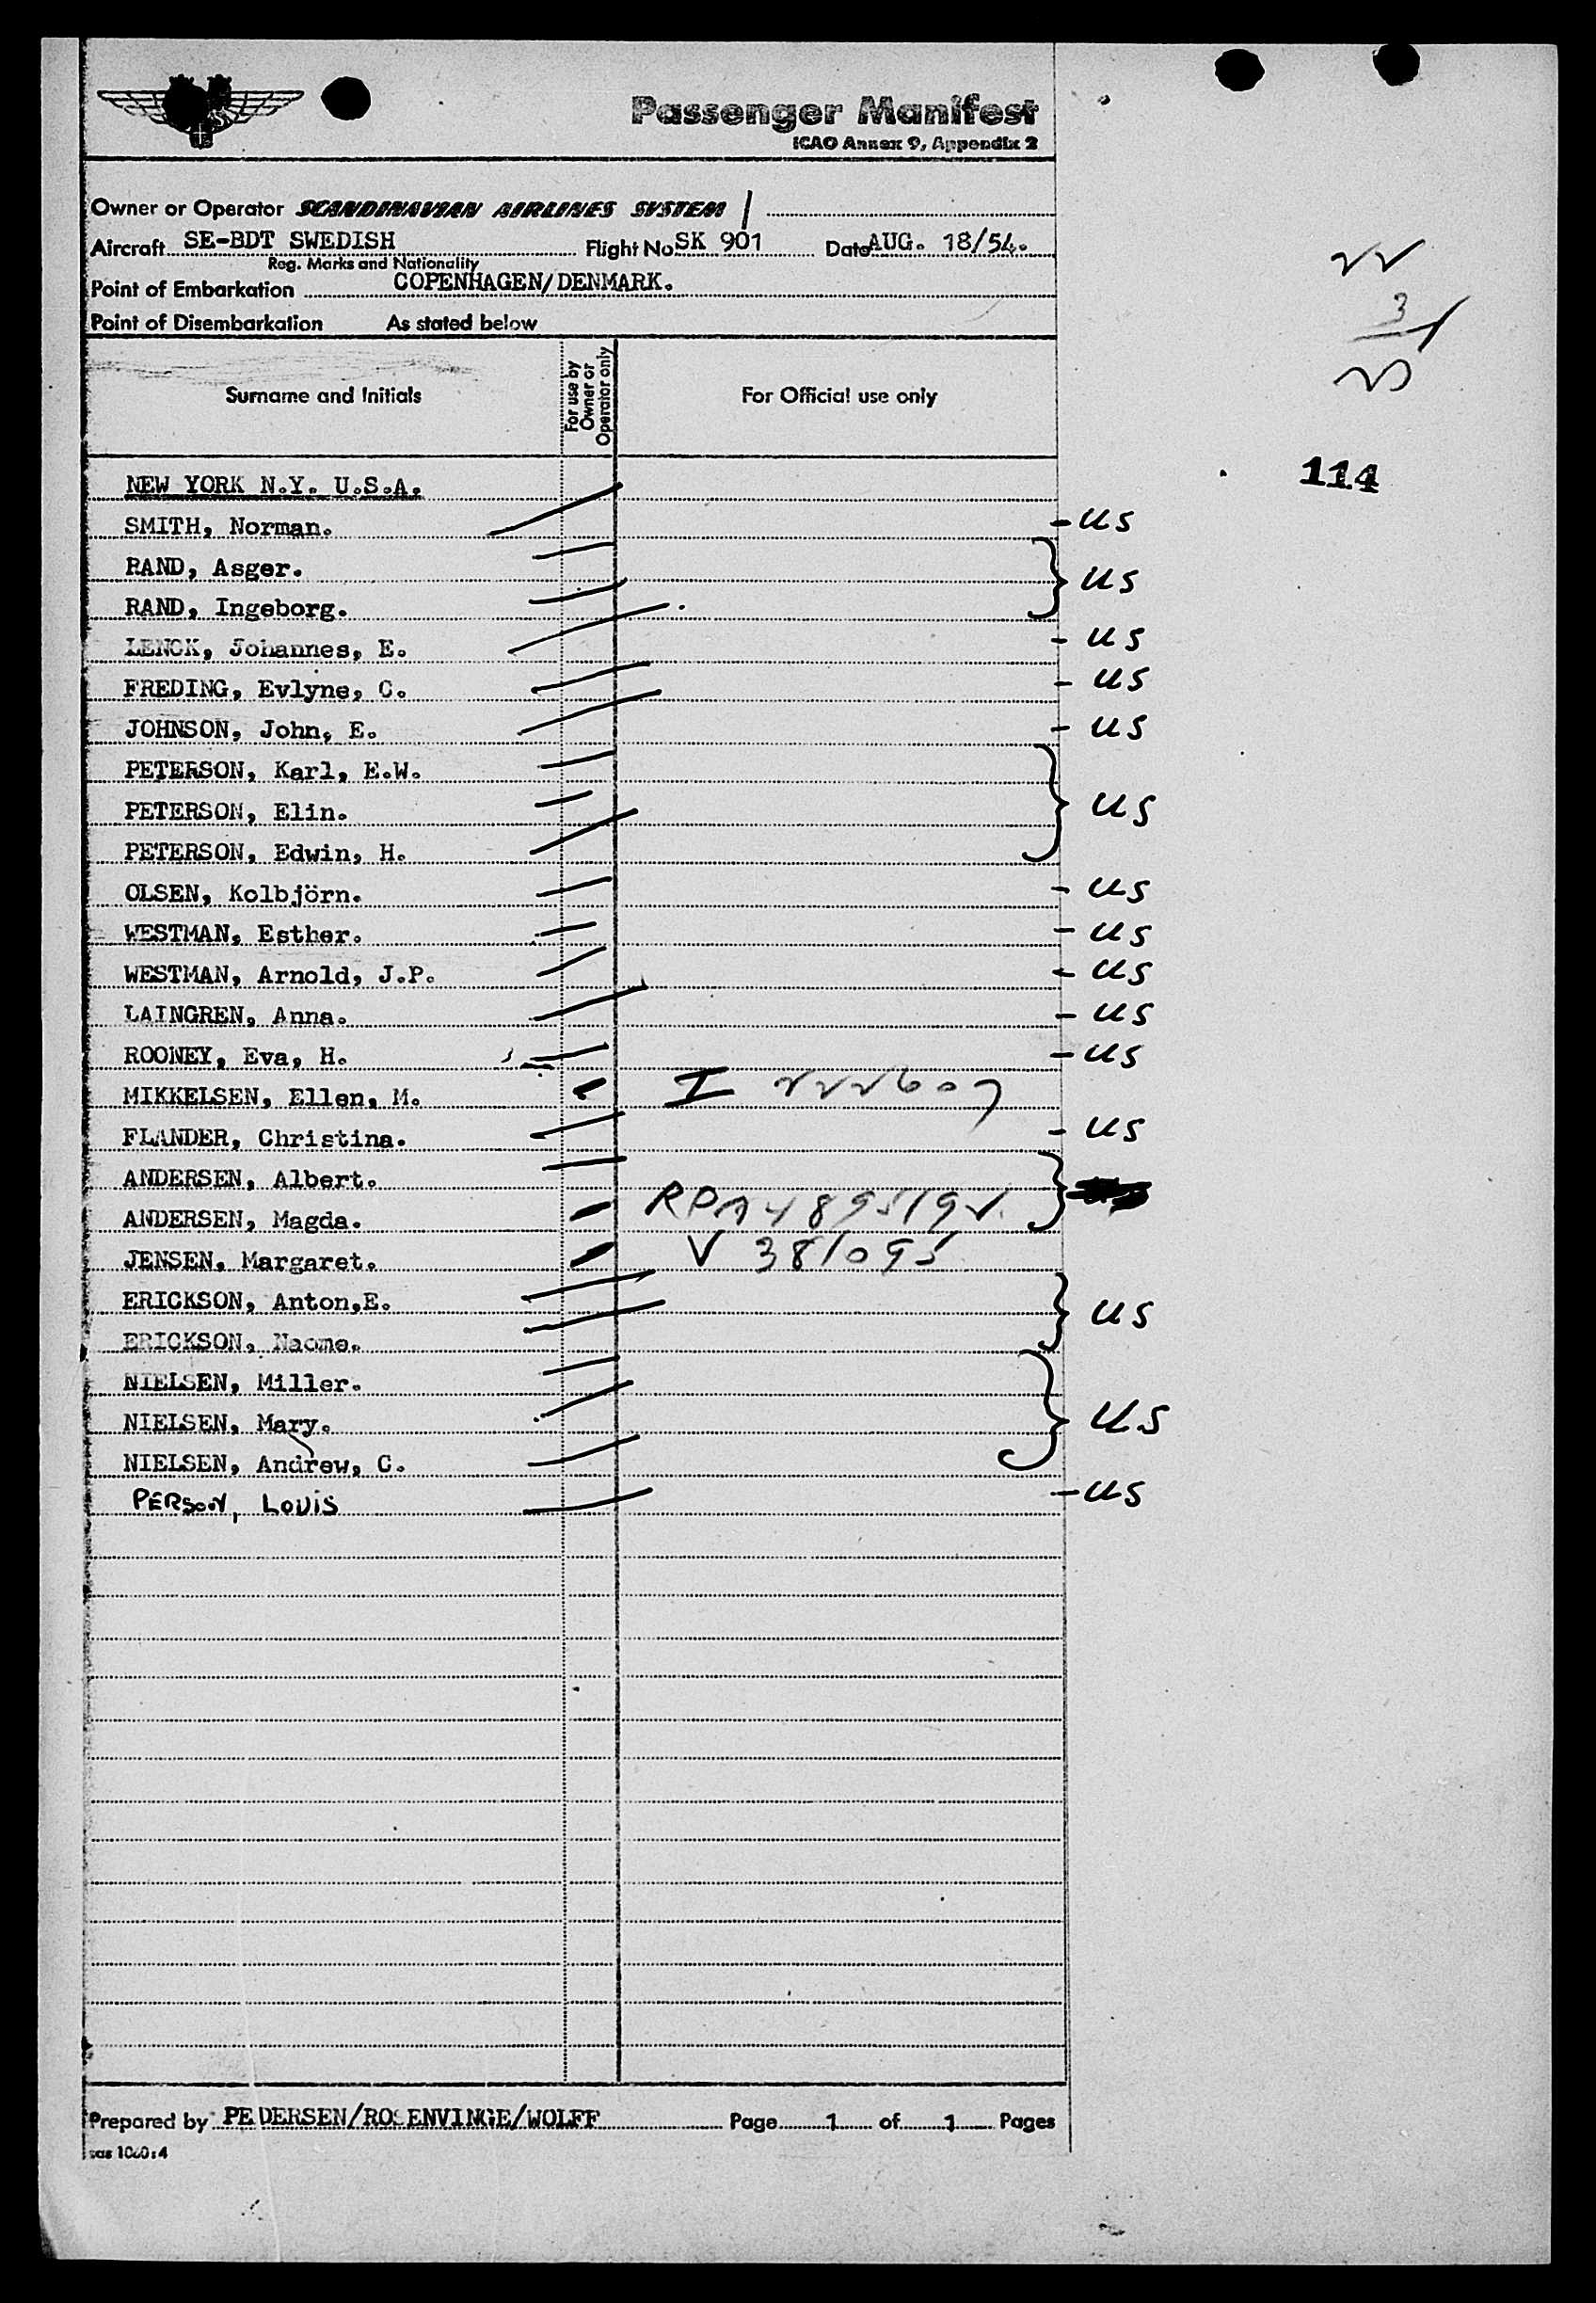 Passenger Manifest
ICAO Annex 9, Appendix 2
Owner or Operator SCANDINAVIAN AIRLINES SYSTEM
Aircraft SE-BDT SWEDISH Flight No SK 901 Date AUG. 18/54.
Reg. Marks and Nationality
Point of Embarkation COPENHAGEN/DENMARK.
Point of Disembarkation As stated below
22
3
25
Surname and Initials For use by Owner or Operator only For Official use only
114
NEW YORK N.Y. U.S.A.
SMITH, Norman. - US
RAND, Asger.
US
RAND, Ingeborg.
LENCK, Johannes, E. - US
FREDING, Evlyne, C. - US
JOHNSON, John, E. - US
PETERSON, Karl, E.W.
PETERSON, Elin. US
PETERSON, Edwin, H.
OLSEN, Kolbjörn. - US
WESTMAN, Esther. - US
WESTMAN, Arnold, J.P. - US
LAINGREN, Anna. - US
ROONEY, Eva, H. - US
MIKKELSEN, Ellen, M. I 222607
FLANDER, Christina. - US
ANDERSEN, Albert.
ANDERSEN, Magda.
JENSEN, Margaret. V 381095
ERICKSON, Anton,E.
US
ERICKSON, Naome.
NIELSEN, Miller.
NIELSEN, Mary. US
NIELSEN, Andrew, C.
PERSON, LOUIS - US
Prepared by PEDERSEN/ROSENVINGE/WOLFF Page 1 of 1 Pages
sas 1060:4